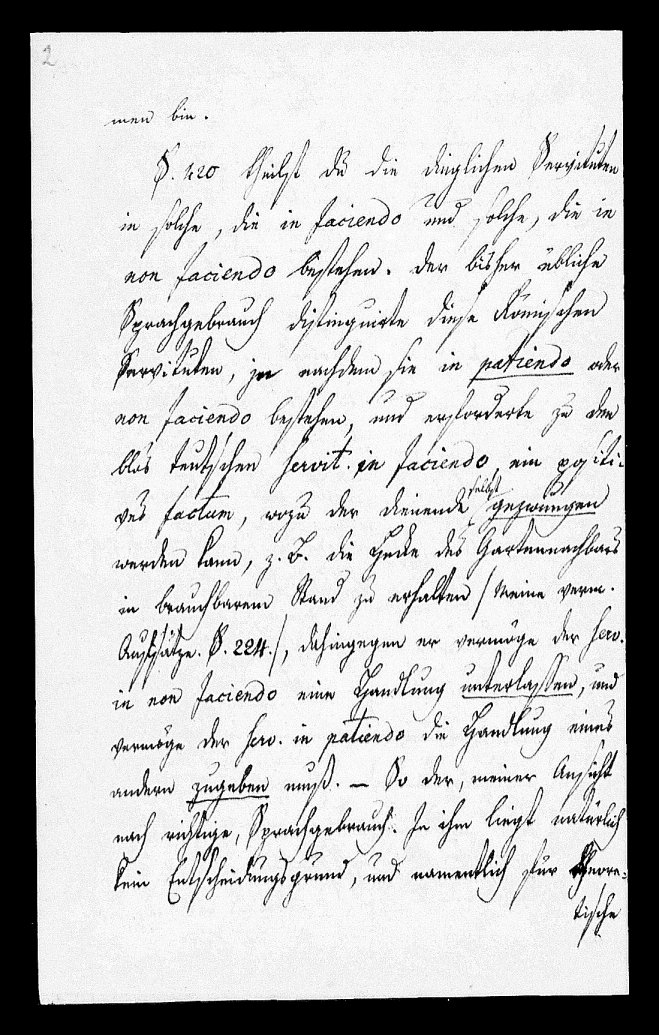 2
men bin.
§. 420 theilst du die dinglichen Servituten
in solche, die in faciendo und solche, die in
non faciendo bestehen. Der bisher übliche
Sprachgebrauch distinguirte diese Römischen
Servituten, je nachdem sie in patiendo oder
non faciendo bestehen, und erforderte zu den
blos teutschen servit. in faciendo, ein positi-
ves factum, wozu der dienende selbst gezwungen
werden kann, z. B. die Hecke des Gartennachbars
in brauchbarem Stand zu erhalten / Meine verm.
Aufsätze. S. 224. /, dahingegen er vermöge der serv.
in non faciendo eine Handlung unterlassen, und
vermöge der serv. in patiendo die Handlung eines
andern zugeben muß. — So der, meiner Ansicht
nach richtige, Sprachgebrauch. In ihm liegt natürlich
kein Entscheidungsgrund, und namentlich für theore-
tische